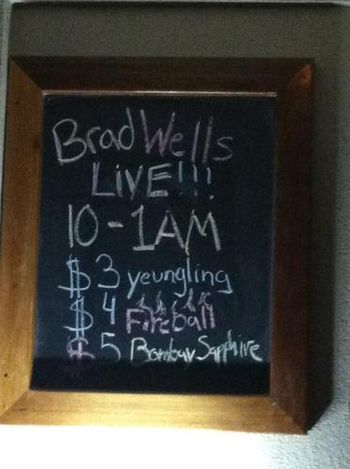 Brad Wells
LIVE!!!
10-1AM
$3 yeungling
$4 Fireball
$5 Bombay Sapphire